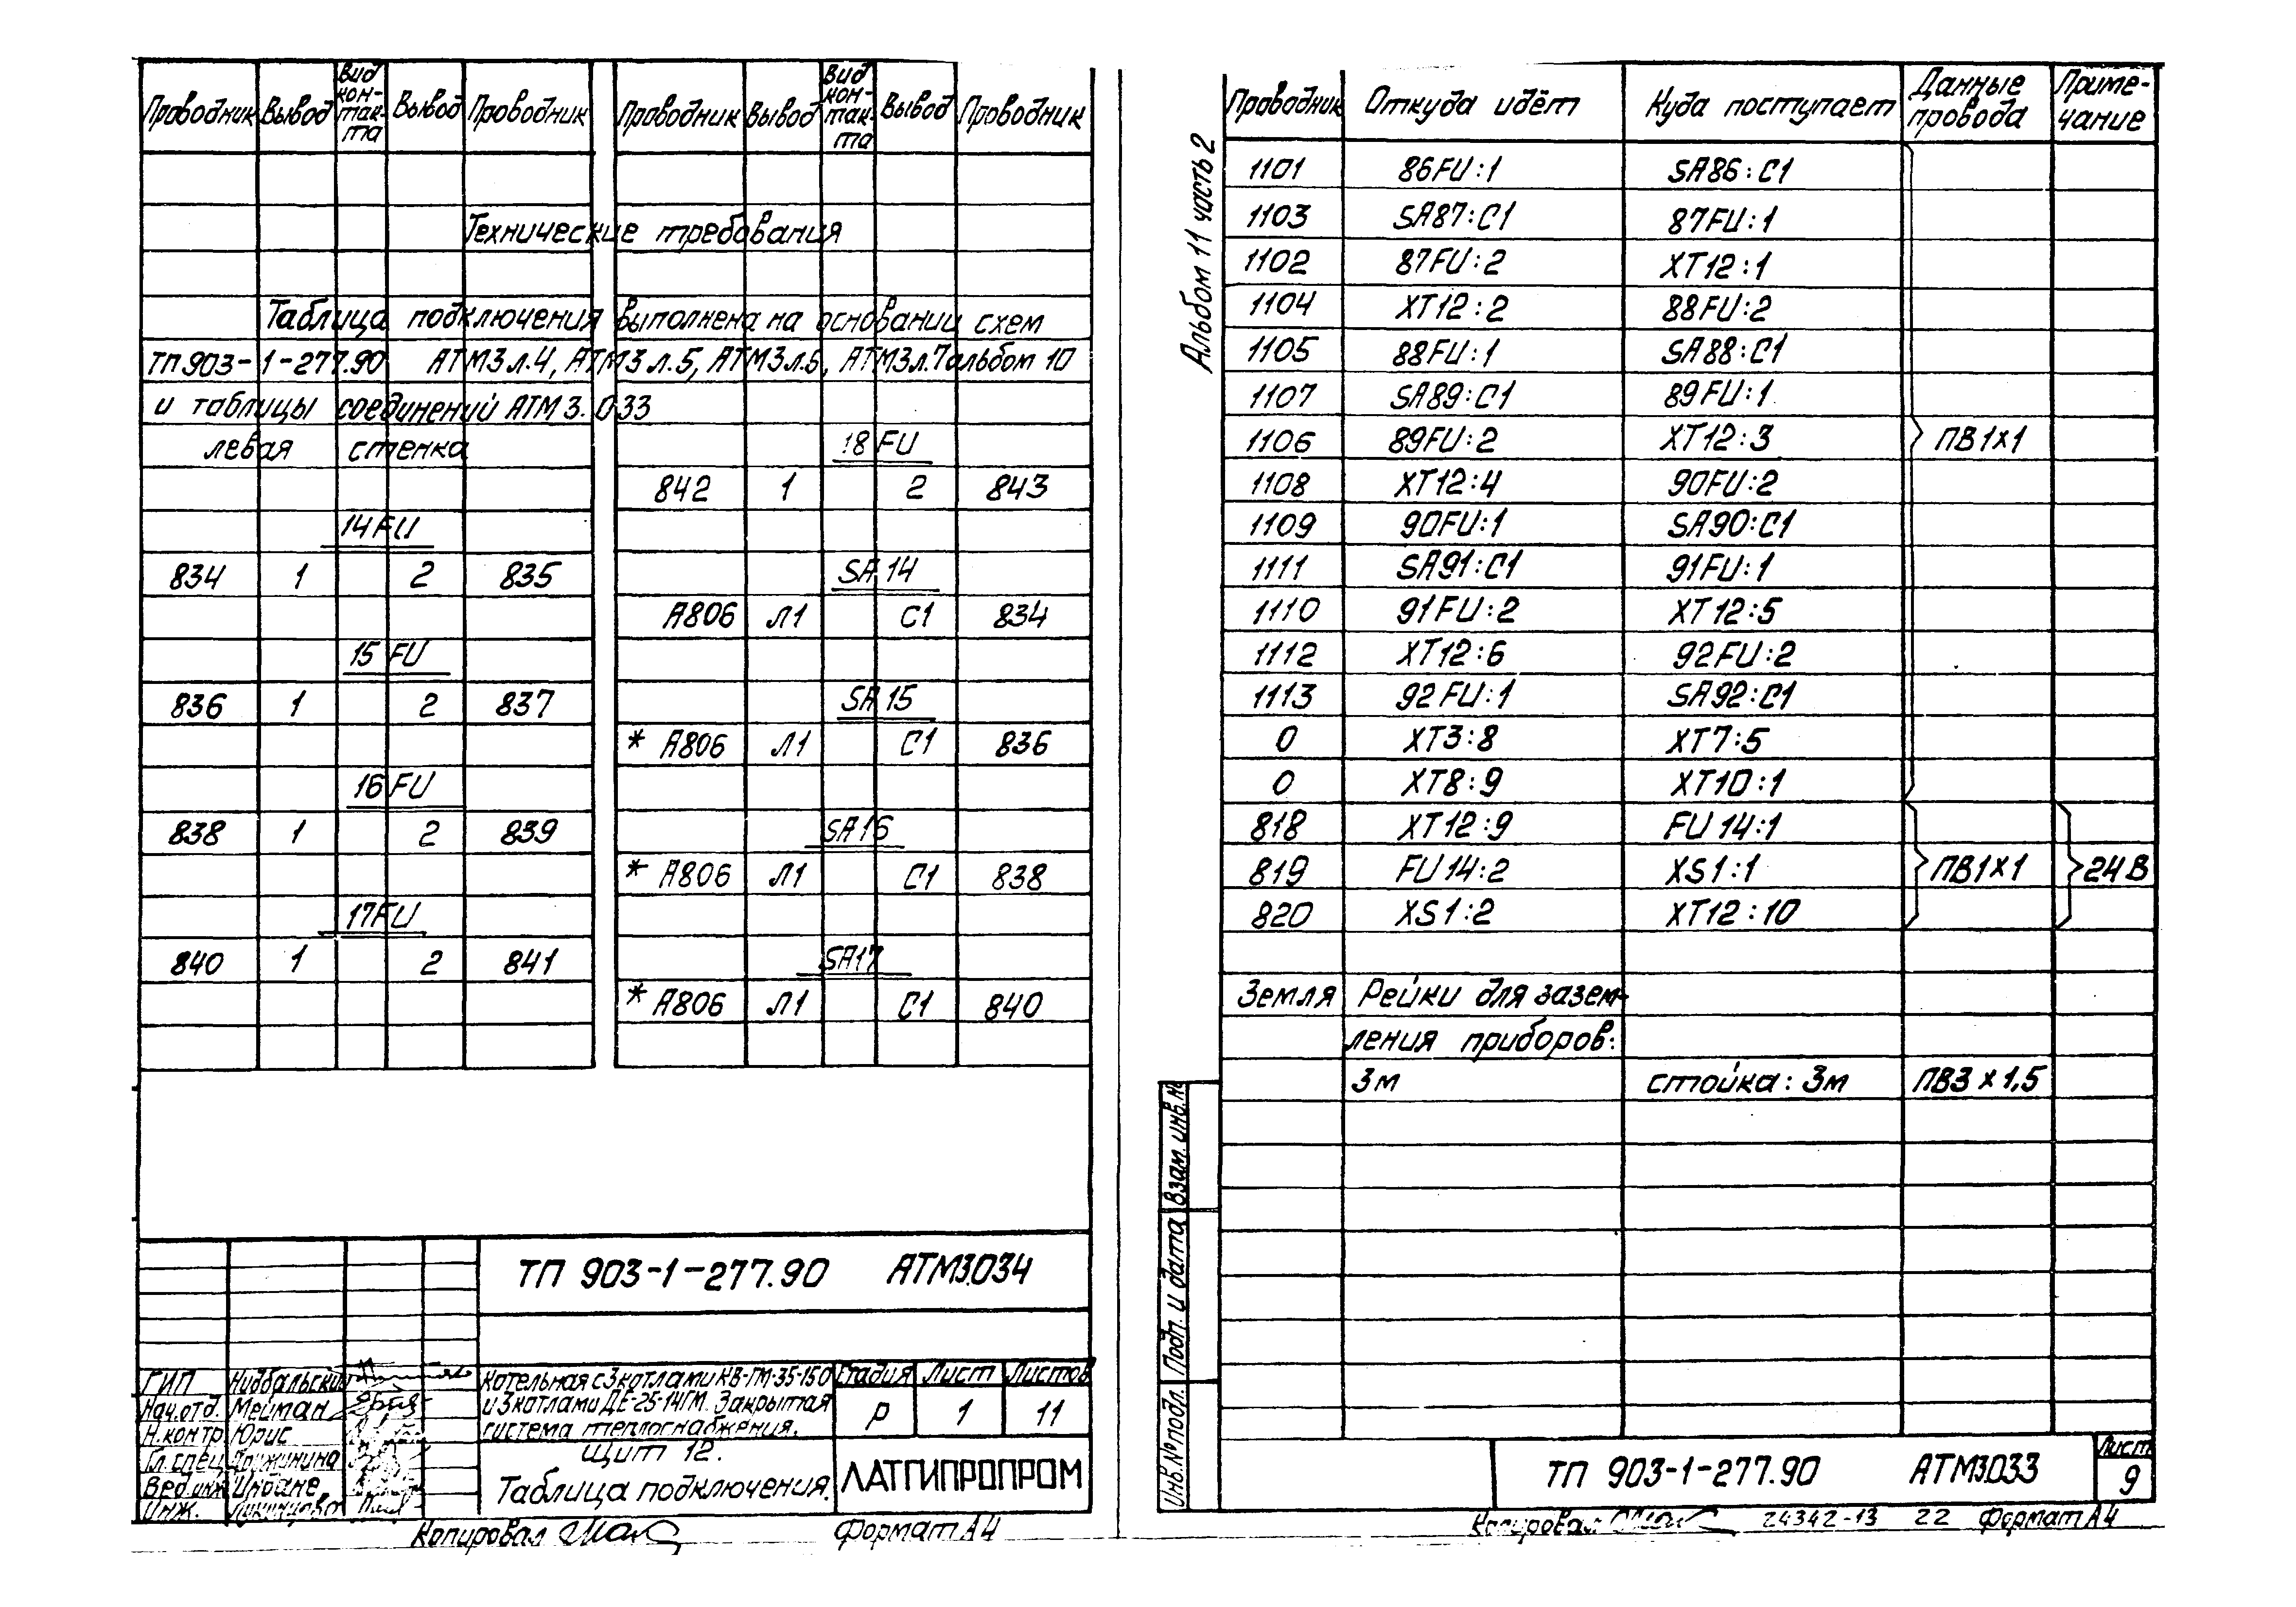 Проводник Вывод Вид кон-так-та Вывод Проводник
Технические требования
Таблица подключения выполнена на основании схем
ТП 903-1-277.90 АТМ3 л.4, АТМ3 л.5, АТМ3 л.6, АТМ3 л.7 альбом 10
и таблицы соединений АТМ3.033
левая стенка
14FU
834 1 2 835
15FU
836 1 2 837
16FU
838 1 2 839
17FU
840 1 2 841
Проводник Вывод Вид кон-так-та Вывод Проводник
18FU
842 1 2 843
SA14
А806 Л1 С1 834
SA15
* А806 Л1 С1 836
SA16
* А806 Л1 С1 838
SA17
* А806 Л1 С1 840
ТП 903-1-277.90 АТМ3.034
ГИП
Нач.отд. Мейман
Н.контр Юрис
Гл.спец Дружинина
Вед.инж
Инж.
Котельная с 3 котлами КВ-ГМ-35-150
и 3 котлами ДЕ-25-14ГМ. Закрытая
система теплоснабжения.
Щит 12.
Таблица подключения.
Стадия Лист Листов
Р 1 11
ЛАТГИПРОПРОМ
Копировал
Формат А4
Альбом 11 часть 2
Проводник Откуда идёт Куда поступает Данные провода Приме-чание
1101 86FU:1 SA86:C1
1103 SA87:C1 87FU:1
1102 87FU:2 XT12:1
1104 XT12:2 88FU:2
1105 88FU:1 SA88:C1
1107 SA89:C1 89FU:1
1106 89FU:2 XT12:3 ПВ1х1
1108 XT12:4 90FU:2
1109 90FU:1 SA90:C1
1111 SA91:C1 91FU:1
1110 91FU:2 XT12:5
1112 XT12:6 92FU:2
1113 92FU:1 SA92:C1
0 XT3:8 XT7:5
0 XT8:9 XT10:1
818 XT12:9 FU14:1
819 FU14:2 XS1:1 ПВ1х1 24В
820 XS1:2 XT12:10
Земля Рейки для зазем-
ления приборов:
3м стойка: 3м ПВ3 х 1,5
Инв.№ подл. Подп. и дата Взам. инв.№
ТП 903-1-277.90 АТМ3.033
Лист
9
Копировал 24342-13 22 Формат А4